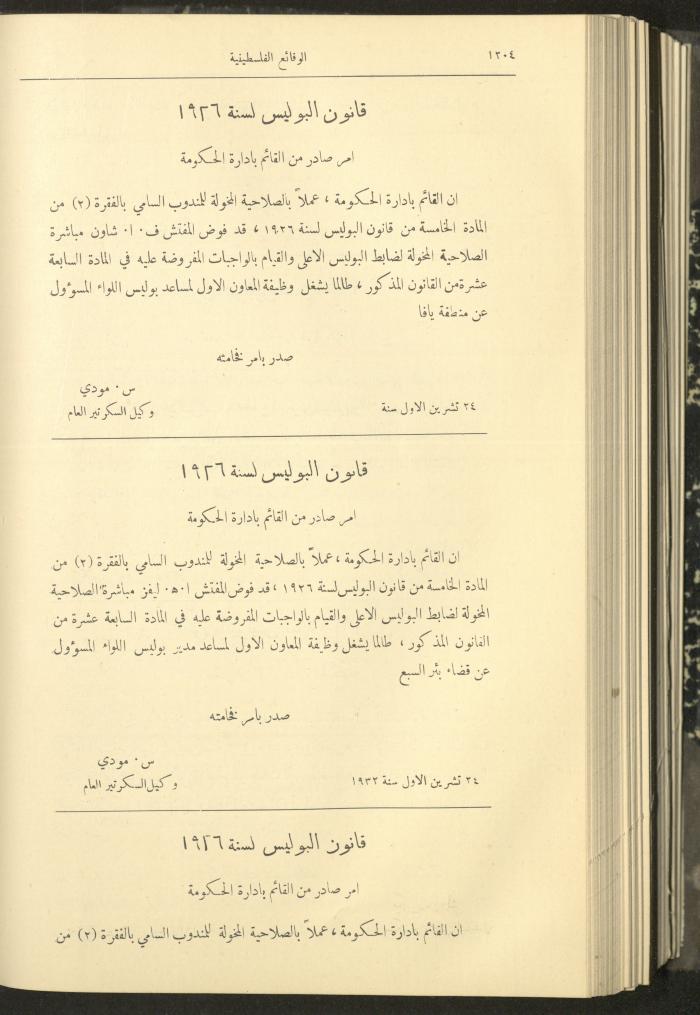 ١٣٠٤
الوقائع الفلسطينية
قانون البوليس لسنة ١٩٢٦
امر صادر من القائم بادارة الحكومة
ان القائم بادارة الحكومة ، عملاً بالصلاحية المخولة للمندوب السامي بالفقرة (٢) من
المادة الخامسة من قانون البوليس لسنة ١٩٢٦ ، قد فوض المفتش ف٠ ا٠ شاون مباشرة
الصلاحية المخولة لضابط البوليس الاعلى والقيام بالواجبات المفروضة عليه في المادة السابعة
عشرة من القانون المذكور ، طالما يشغل وظيفة المعاون الاول لمساعد بوليس اللواء المسوؤل
عن منطقة يافا
صدر بامر فخامته
س٠ مودي
٢٤ تشرين الاول سنة
وكيل السكرتير العام
قانون البوليس لسنة ١٩٢٦
امر صادر من القائم بادارة الحكومة
ان القائم بادارة الحكومة ، عملاً بالصلاحية المخولة للمندوب السامي بالفقرة (٢) من
المادة الخامسة من قانون البوليس لسنة ١٩٢٦ ، قد فوض المفتش ا٠ ه٠ ليفز مباشرة الصلاحية
المخولة لضابط البوليس الاعلى والقيام بالواجبات المفروضة عليه في المادة السابعة عشرة من
القانون المذكور ، طالما يشغل وظيفة المعاون الاول لمساعد مدير بوليس اللواء المسوؤل
عن قضاء بئر السبع
صدر بامر فخامته
س٠ مودي
٢٤ تشرين الاول سنة ١٩٣٢
وكيل السكرتير العام
قانون البوليس لسنة ١٩٢٦
امر صادر من القائم بادارة الحكومة
ان القائم بادارة الحكومة ، عملاً بالصلاحية المخولة للمندوب السامي بالفقرة (٢) من